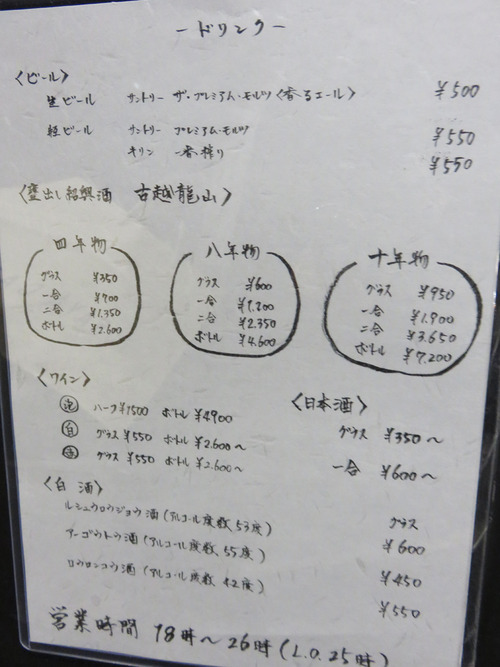 －ドリンク－
〈ビール〉
生ビール サントリー ザ・プレミアム・モルツ〈香るエール〉 ¥500
瓶ビール サントリー プレミアム・モルツ ¥550
キリン 一番搾り ¥550
〈甕出し紹興酒 古越龍山〉
四年物
グラス ¥350
一合 ¥700
二合 ¥1.350
ボトル ¥2.600
八年物
グラス ¥600
一合 ¥1.200
二合 ¥2.350
ボトル ¥4.600
十年物
グラス ¥950
一合 ¥1.900
二合 ¥3.650
ボトル ¥7.200
〈ワイン〉
泡 ハーフ¥1500 ボトル ¥4900
白 グラス ¥550 ボトル ¥2.600～
赤 グラス ¥550 ボトル ¥2.600～
〈日本酒〉
グラス ¥350～
一合 ¥600～
〈白酒〉
グラス
ルシュウロウジョウ酒(アルコール度数53度) ¥600
アーゴウトウ酒(アルコール度数55度) ¥450
ロウロンコウ酒(アルコール度数42度) ¥550
営業時間 18時～26時(L.O.25時)